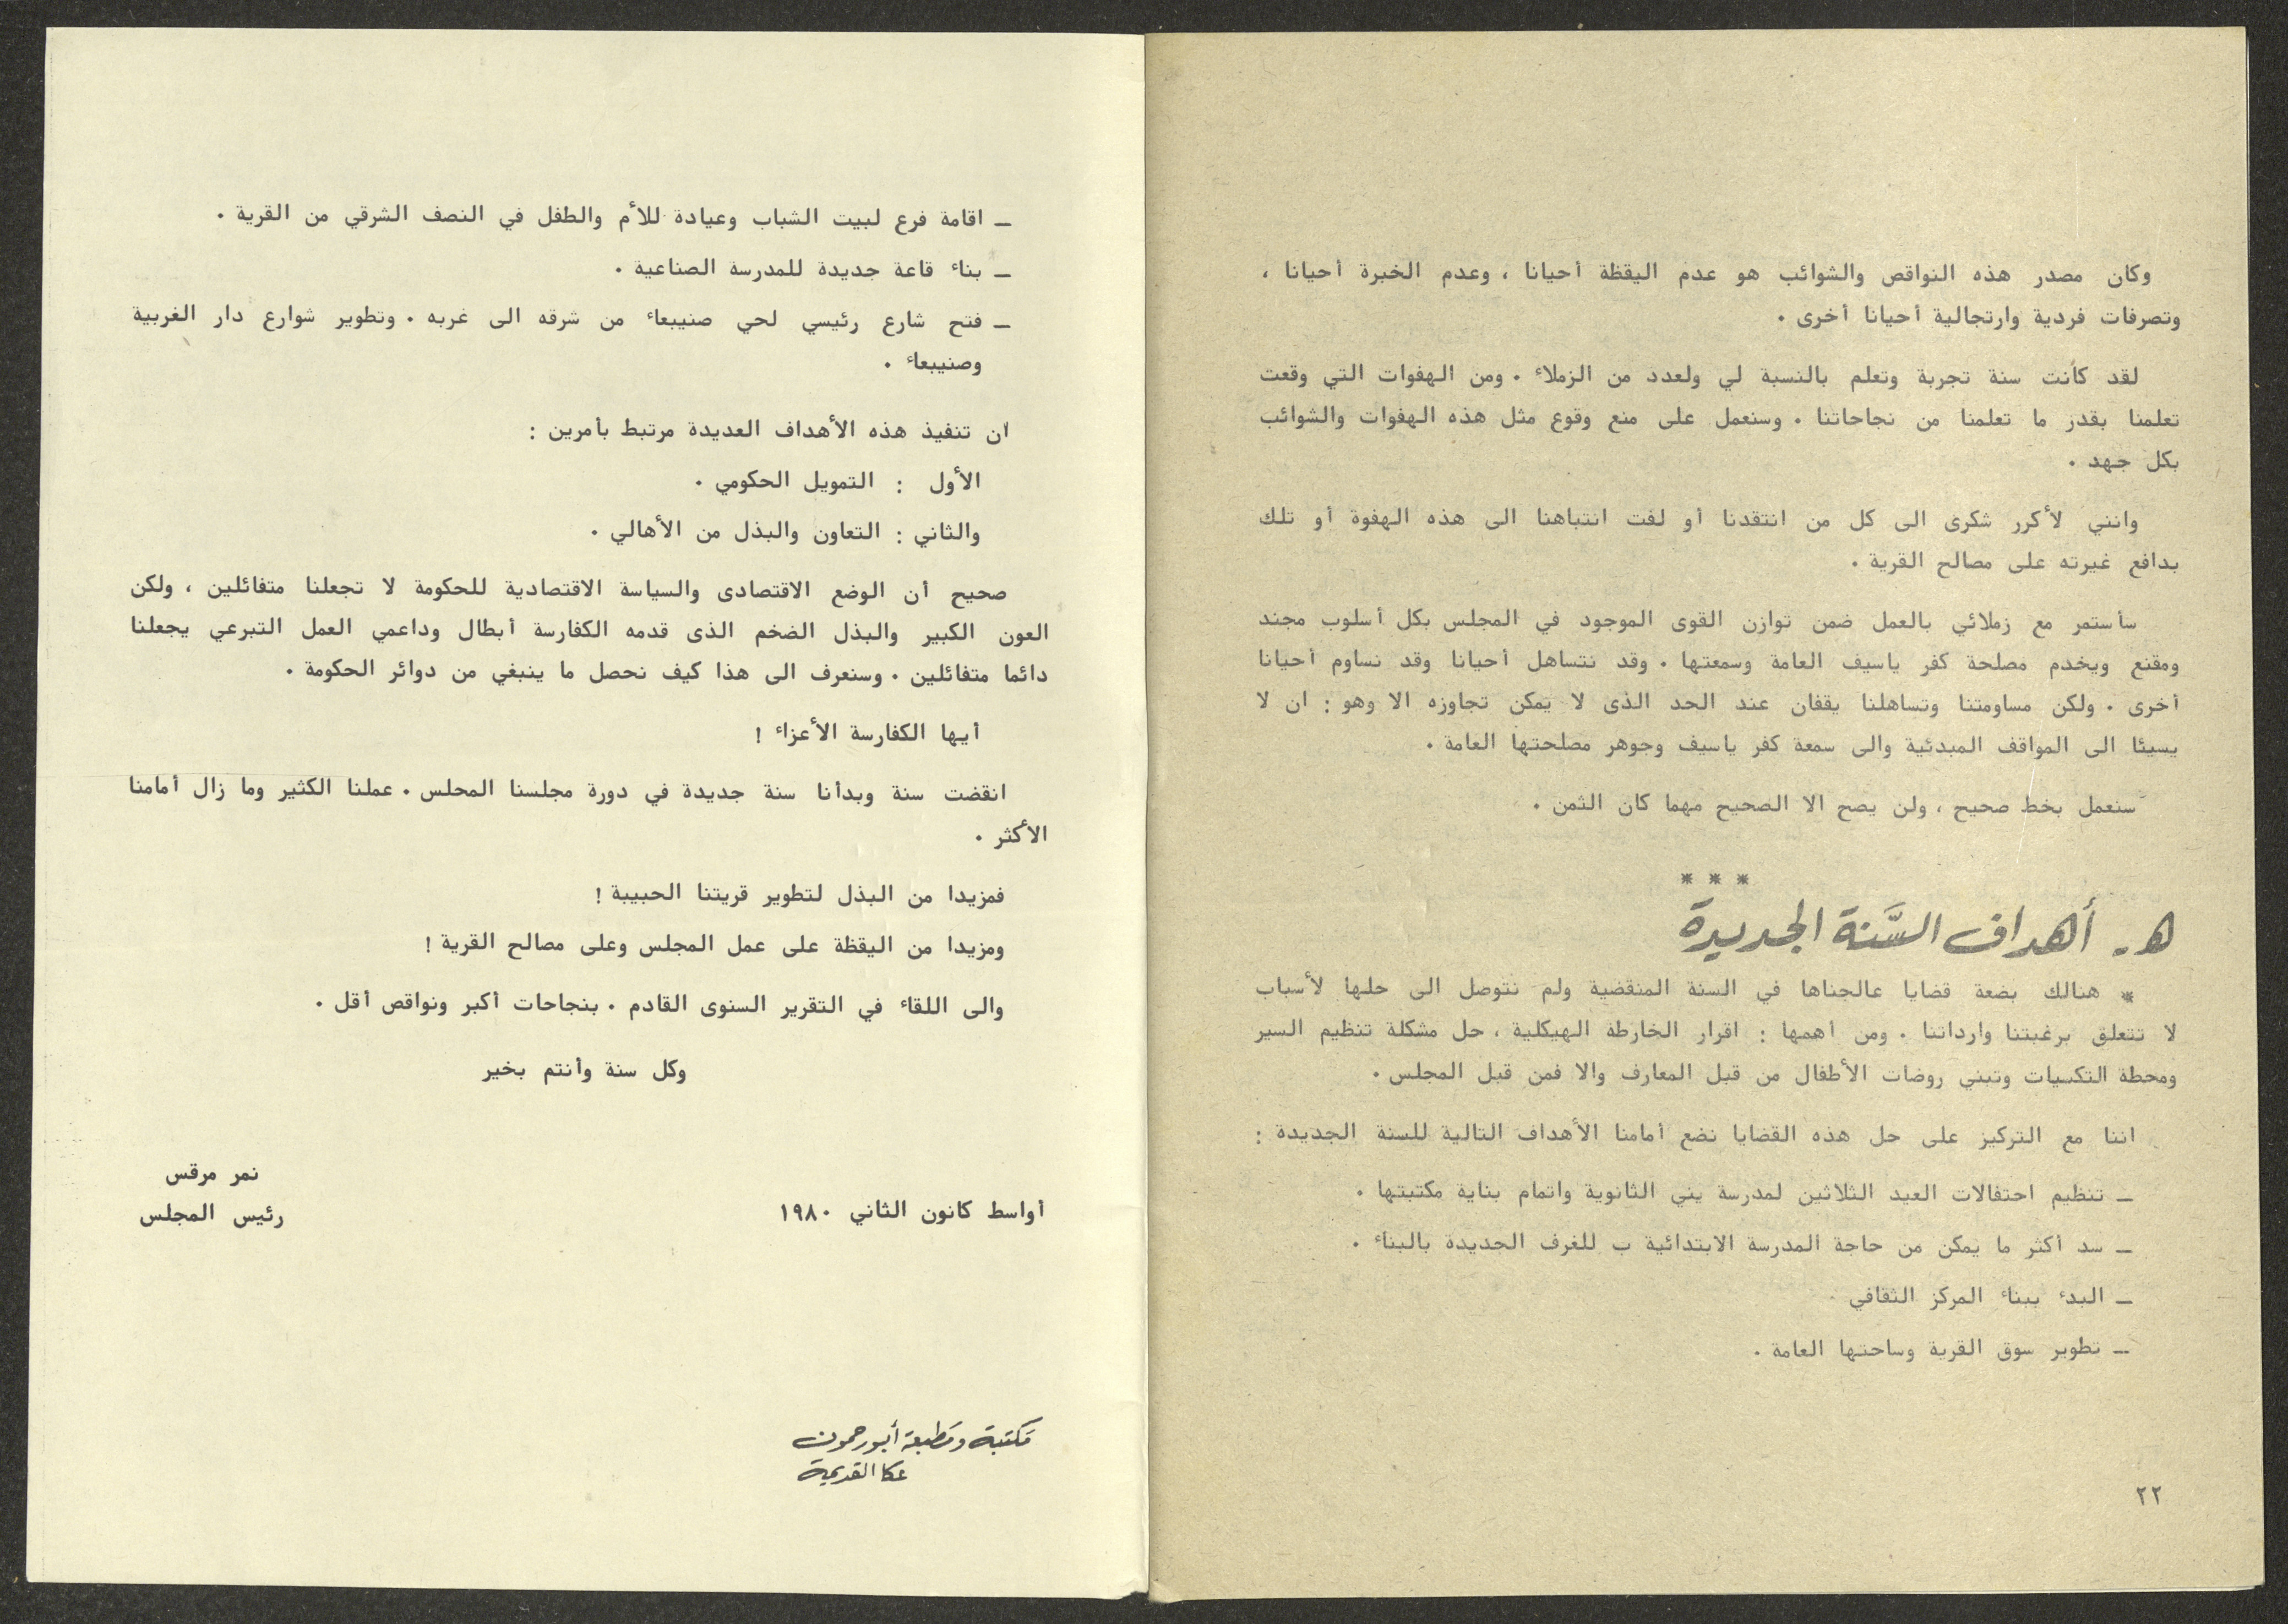 وكان مصدر هذه النواقص والشوائب هو عدم اليقظة أحيانا ، وعدم الخبرة أحيانا ،
وتصرفات فردية وارتجالية أحيانا أخرى .
لقد كانت سنة تجربة وتعلم بالنسبة لي ولعدد من الزملاء . ومن الهفوات التي وقعت
تعلمنا بقدر ما تعلمنا من نجاحاتنا . وسنعمل على منع وقوع مثل هذه الهفوات والشوائب
بكل جهد .
وانني لأكرر شكرى الى كل من انتقدنا أو لفت انتباهنا الى هذه الهفوة أو تلك
بدافع غيرته على مصالح القرية .
سأستمر مع زملائي بالعمل ضمن توازن القوى الموجود في المجلس بكل أسلوب مجند
ومقنع ويخدم مصلحة كفر ياسيف العامة وسمعتها . وقد نتساهل أحيانا وقد نساوم أحيانا
أخرى . ولكن مساومتنا وتساهلنا يقفان عند الحد الذى لا يمكن تجاوزه الا وهو : ان لا
يسيئا الى المواقف المبدئية والى سمعة كفر ياسيف وجوهر مصلحتها العامة .
سنعمل بخط صحيح ، ولن يصح الا الصحيح مهما كان الثمن .
* * *
ه - أهداف السَّنة الجديدة
* هنالك بضعة قضايا عالجناها في السنة المنقضية ولم نتوصل الى حلها لأسباب
لا تتعلق برغبتنا وارداتنا . ومن أهمها : اقرار الخارطة الهيكلية ، حل مشكلة تنظيم السير
ومحطة التكسيات وتبني روضات الأطفال من قبل المعارف والا فمن قبل المجلس .
اننا مع التركيز على حل هذه القضايا نضع أمامنا الأهداف التالية للسنة الجديدة :
ـ تنظيم احتفالات العيد الثلاثين لمدرسة يني الثانوية واتمام بناية مكتبتها .
ـ سد أكثر ما يمكن من حاجة المدرسة الابتدائية ب للغرف الجديدة بالبناء .
ـ البدء ببناء المركز الثقافي
ـ تطوير سوق القرية وساحتها العامة .
٢٢
ـ اقامة فرع لبيت الشباب وعيادة للأم والطفل في النصف الشرقي من القرية .
ـ بناء قاعة جديدة للمدرسة الصناعية .
ـ فتح شارع رئيسي لحي صنيبعاء من شرقه الى غربه . وتطوير شوارع دار الغربية
وصنيبعاء .
ان تنفيذ هذه الأهداف العديدة مرتبط بأمرين :
الأول : التمويل الحكومي .
والثاني : التعاون والبذل من الأهالي .
صحيح أن الوضع الاقتصادى والسياسة الاقتصادية للحكومة لا تجعلنا متفائلين ، ولكن
العون الكبير والبذل الضخم الذى قدمه الكفارسة أبطال وداعمي العمل التبرعي يجعلنا
دائما متفائلين . وسنعرف الى هذا كيف نحصل ما ينبغي من دوائر الحكومة .
أيها الكفارسة الأعزاء !
انقضت سنة وبدأنا سنة جديدة في دورة مجلسنا المحلس . عملنا الكثير وما زال أمامنا
الأكثر .
فمزيدا من البذل لتطوير قريتنا الحبيبة !
ومزيدا من اليقظة على عمل المجلس وعلى مصالح القرية !
والى اللقاء في التقرير السنوى القادم . بنجاحات أكبر ونواقص أقل .
وكل سنة وأنتم بخير
نمر مرقس
رئيس المجلس
أواسط كانون الثاني ١٩٨٠
مكتبة ومطبعة أبو رحمون
عكا القديمة